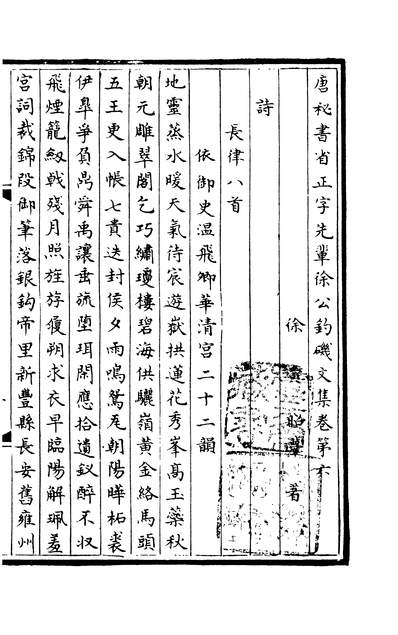 唐秘書省正字先輩徐公釣磯文集卷第六
徐寅昭夢著
詩
長律八首
依御史温飛卿華清宮二十二韻
地靈蒸水暖天氣待宸遊嶽拱蓮花秀峯髙玉蘂秋
朝元雕翠閣乞巧繡瓊樓碧海供驪嶺黃金絡馬頭
五王更入帳七貴迭封侯夕雨鳴鴛瓦朝陽曄柘裘
伊臯爭負鼎舜禹讓垂旒墮珥閑應拾遺釵醉不収
飛煙籠劔戟殘月照旌斿履朔求衣早臨陽解珮羞
宮詞裁錦段御筆落銀鈎帝里新豐縣長安舊雍州